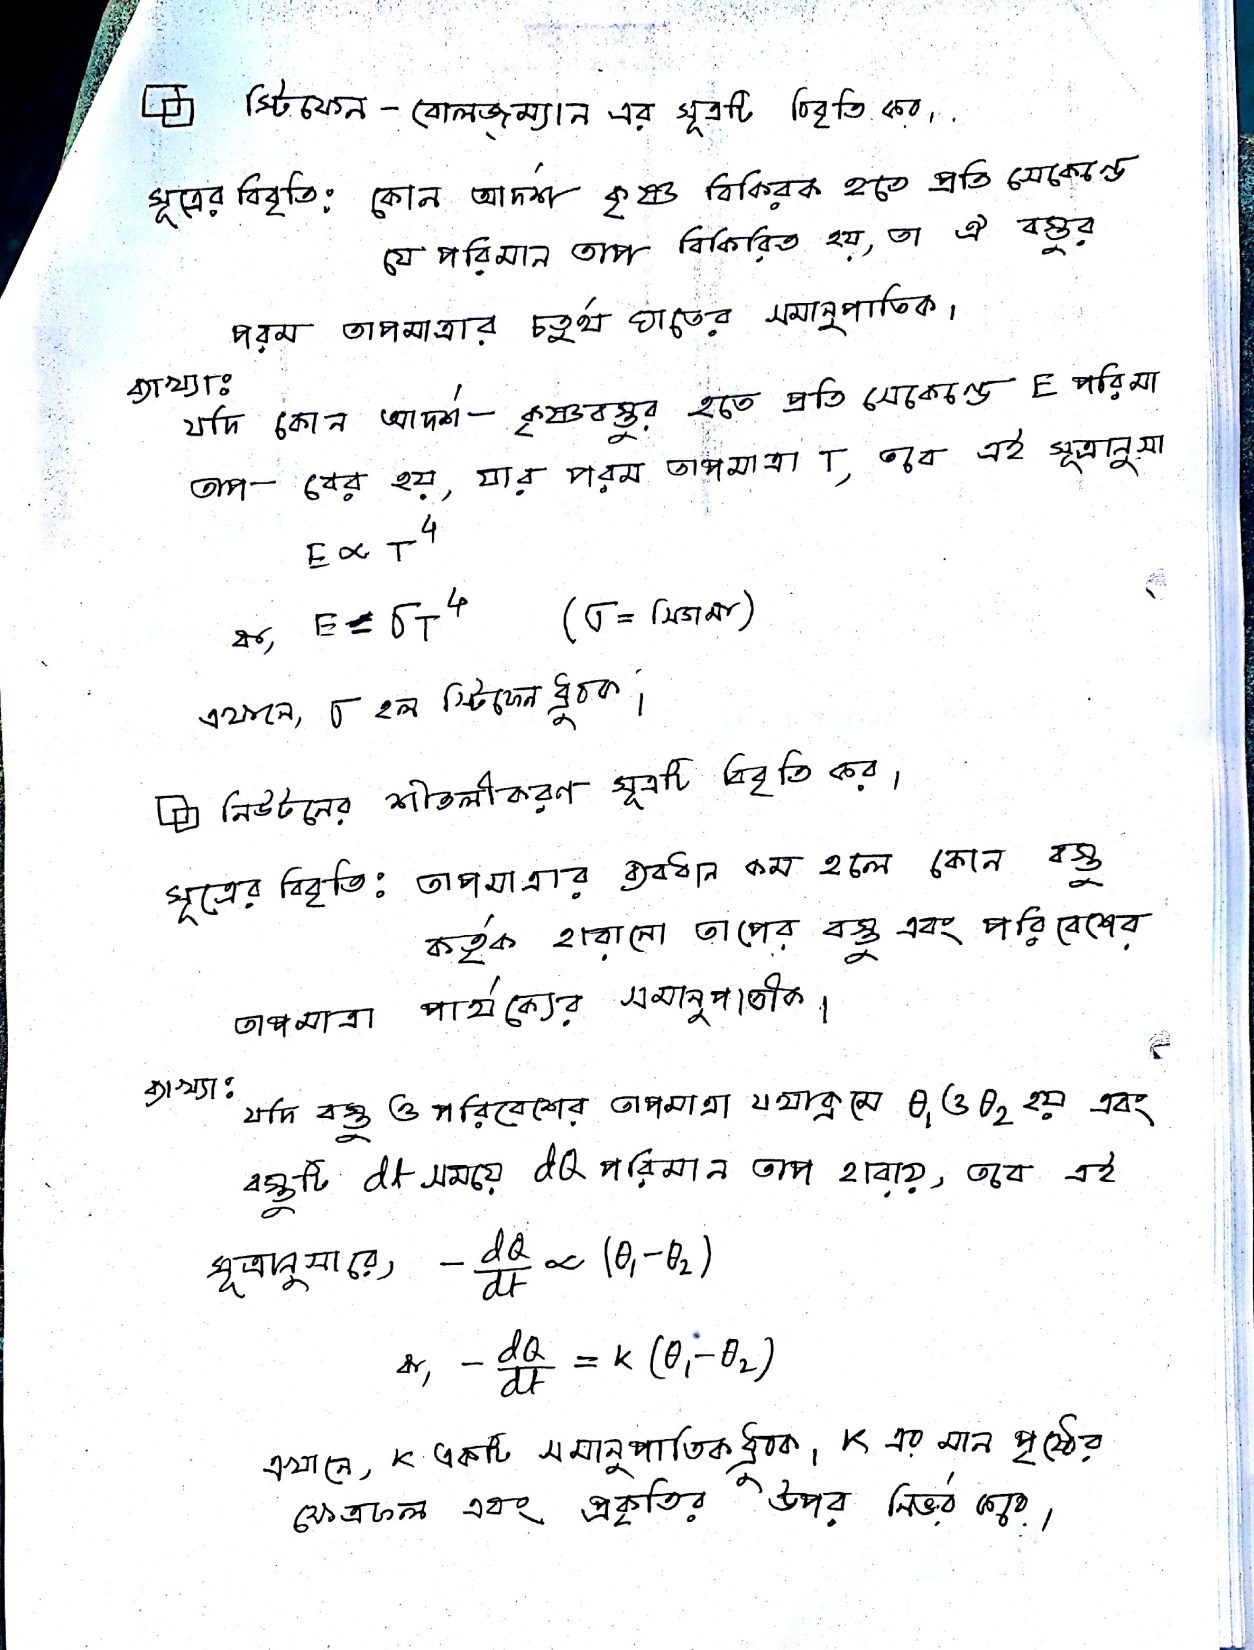 স্টিফেন - বোলজম্যান এর সূত্রটি বিবৃতি কর।
সূত্রের বিবৃতি: কোন আদর্শ কৃষ্ণ বিকিরক হতে প্রতি সেকেন্ডে
যে পরিমান তাপ বিকিরিত হয়, তা ঐ বস্তুর
পরম তাপমাত্রার চতুর্থ ঘাতের সমানুপাতিক।
ব্যাখ্যা:
যদি কোন আদর্শ কৃষ্ণবস্তুর হতে প্রতি সেকেন্ডে E পরিমা
তাপ বের হয়, যার পরম তাপমাত্রা T, তবে এই সূত্রানুসা
E ∝ T⁴
বা, E = σT⁴ (σ = সিগমা)
এখানে, σ হল স্টিফেন ধ্রুবক।
নিউটনের শীতলীকরণ সূত্রটি বিবৃতি কর।
সূত্রের বিবৃতি: তাপমাত্রার ব্যবধান কম হলে কোন বস্তু
কর্তৃক হারানো তাপের বস্তু এবং পরিবেশের
তাপমাত্রা পার্থক্যের সমানুপাতীক।
ব্যাখ্যা:
যদি বস্তু ও পরিবেশের তাপমাত্রা যথাক্রমে θ₁ ও θ₂ হয় এবং
বস্তুটি dt সময়ে dQ পরিমান তাপ হারায়, তবে এই
সূত্রানুসারে, - dQ/dt ∝ (θ₁-θ₂)
বা, - dQ/dt = K (θ₁-θ₂)
এখানে, K একটি সমানুপাতিক ধ্রুবক, K এর মান পৃষ্ঠের
ক্ষেত্রফল এবং প্রকৃতির উপর নির্ভর করে।